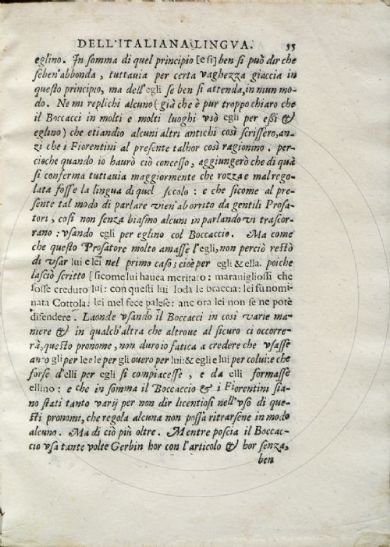 DELL'ITALIANA LINGVA. 55
eglino. In somma di quel principio [e si] ben si può dir che
seben'abbonda, tuttauia per certa vaghezza giaccia in
questo principio, ma dell'egli se ben si attenda, in niun mo-
do. Ne mi replichi alcuno (già che è pur troppo chiaro che
il Boccacci in molti e molti luoghi vsò egli per essi &
eglino) che etiandio alcuni altri antichi così scrissero, an-
zi che i Fiorentini al presente talhor così ragionino. per-
cioche quando io haurò ciò concesso, aggiungerò che di quà
si conferma tuttauia maggiormente che rozza e mal rego-
lata fosse la lingua di quel secolo: e che sicome al pre-
sente tal modo di parlare vien'aborrito da gentili Prosa-
tori, così non senza biasmo alcuni in parlando vi trascor-
rano: vsando egli per eglino col Boccaccio. Ma come
che questo Prosatore molto amasse l'egli, non perciò restò
di vsar lui e lei nel primo caso; cioè per egli & ella. poiche
lasciò scritto [sicome lui hauea meritato: marauigliossi che
fosse creduro lui: con questi lui loda le braccia: lei fu nomi-
nata Cottola: lei mel fece palese: anc ora lei non se ne potè
difendere. Laonde vsando il Boccacci in così varie ma-
niere & in qualch'altra che altroue al sicuro ci occorre-
rà, questo pronome, non duro io fatica a credere che vsasse
anco gli per lei e le per gli ouero per lui: & egli e lui per colui: e che
forse d'elli per egli si compiacesse, e da elli formasse
ellino: e che in somma il Boccaccio & i Fiorentini sia-
no stati tanto varij per non dir licentiosi nell'vso di que-
sti pronomi, che regola alcuna non possa ritrarsene in modo
alcuno. Ma di ciò più oltre. Mentre poscia il Boccac-
cio vsa tante volte Gerbin hor con l'articolo & hor senza,
ben